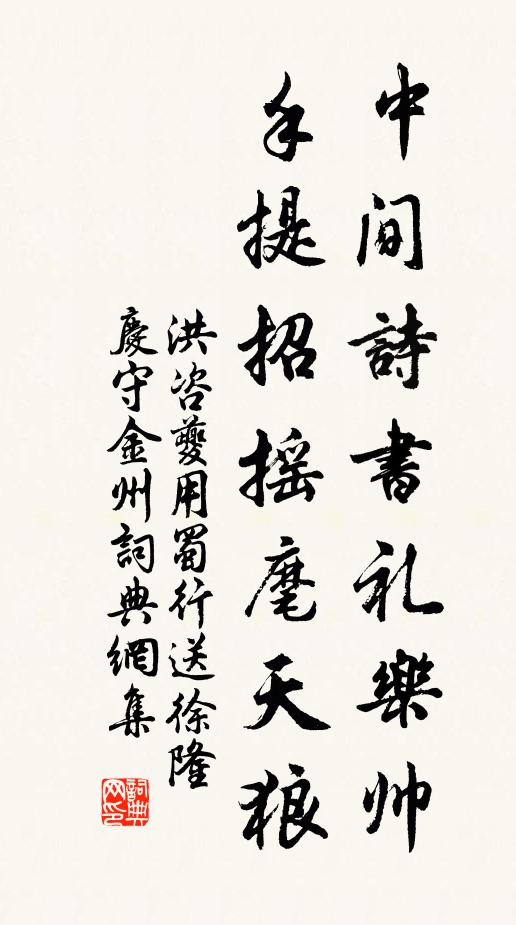 中間詩書礼樂帅
手提招摇麾天狼
洪咨夔用蜀行送徐隆
慶守金州詞典網集
詞典
网印